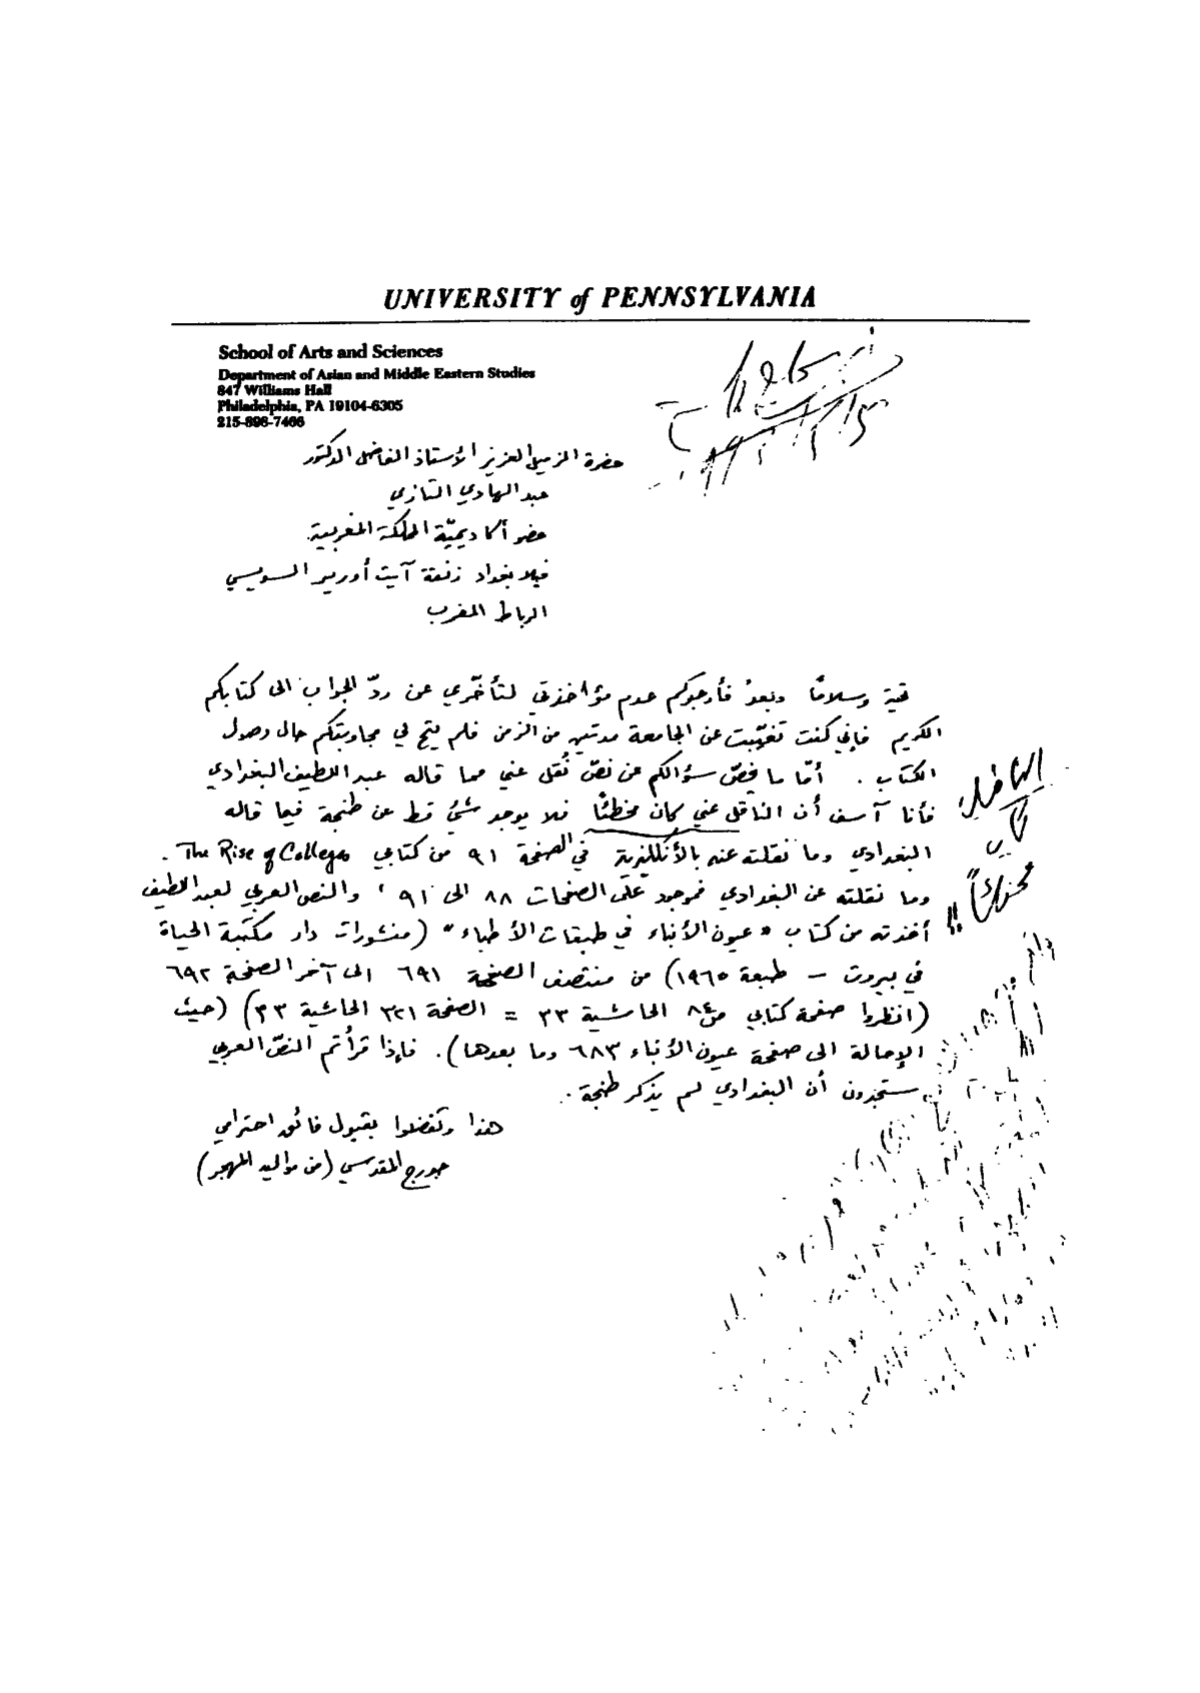 UNIVERSITY of PENNSYLVANIA
School of Arts and Sciences
Department of Asian and Middle Eastern Studies
847 Williams Hall
Philadelphia, PA 19104-6305
215-898-7466
حضرة الزميل العزيز الأستاذ الفاضل الدكتور
عبد الهادي التازي
عضو أكاديميّة المملكة المغربية
فيلا بغداد زنقة آيت أورير السويسي
الرباط المغرب
تحية وسلامًا وبعدُ فأرجوكم عدم مؤاخذتي لتأخّري عن ردّ الجواب الى كتابكم
الكريم فإني كنت تغيّبت عن الجامعة مدتين من الزمن فلم يتح لي مجاوبتكم حال وصول
الكتاب. أمّا ما يخصّ سؤالكم عن نصّ نُقل عني مما قاله عبد اللطيف البغدادي
فأنا آسف أن الناقل عني كان مخطئًا فلا يوجد شيءٌ قط عن طنجة فيما قاله
البغدادي وما نقلته عنه بالأنكليزية في الصفحة ٩١ من كتابي The Rise of Colleges.
وما نقلته عن البغدادي فموجود على الصفحات ٨٨ الى ٩١، والنص العربي لعبد اللطيف
أخذته من كتاب «عيون الأنباء في طبقات الأطباء» (منشورات دار مكتبة الحياة
في بيروت – طبعة ١٩٦٥) من منتصف الصفحة ٦٩١ الى آخر الصفحة ٦٩٢
(انظروا صفحة كتابي ص ٨٤ الحاشية ٣٣ = الصفحة ٣٢١ الحاشية ٣٣) (حيث
الإحالة الى صفحة عيون الأنباء ٦٨٣ وما بعدها). فإذا قرأتم النصّ العربي
ستجدون أن البغدادي لم يذكر طنجة.
هذا وتفضلوا بقبول فائق احترامي
جورج المقدسي (من مواليد المهجر)
الناقل